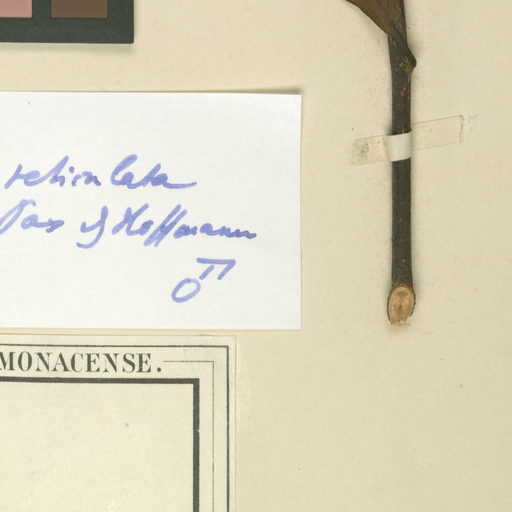 reticulata
Pax & Hoffmann
♂
MONACENSE.